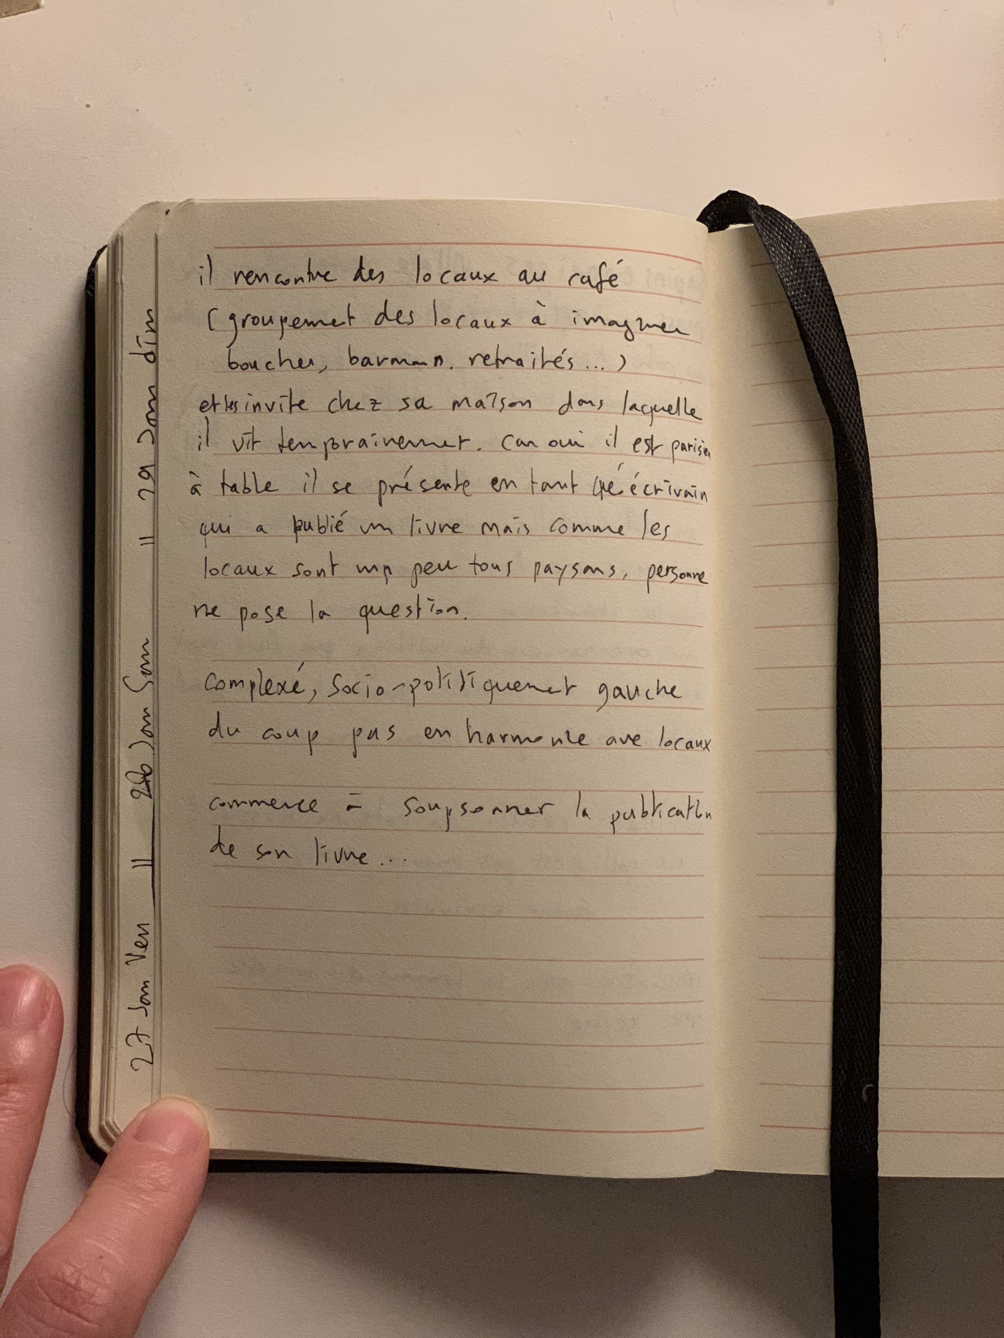 il rencontre des locaux au café
(groupement des locaux à imaginer
boucher, barman, retraités...)
et les invite chez sa maison dans laquelle
il vit temporairement. Car oui il est parisien
à table il se présente en tant qu'écrivain
qui a publié un livre mais comme les
locaux sont un peu tous paysans, personne
ne pose la question.
complexé, socio-politiquement gauche
du coup pas en harmonie ave locaux
commence à soupsonner la publication
de son livre...
27 Jan Ven || 28 Jan Sam || 29 Jan dim